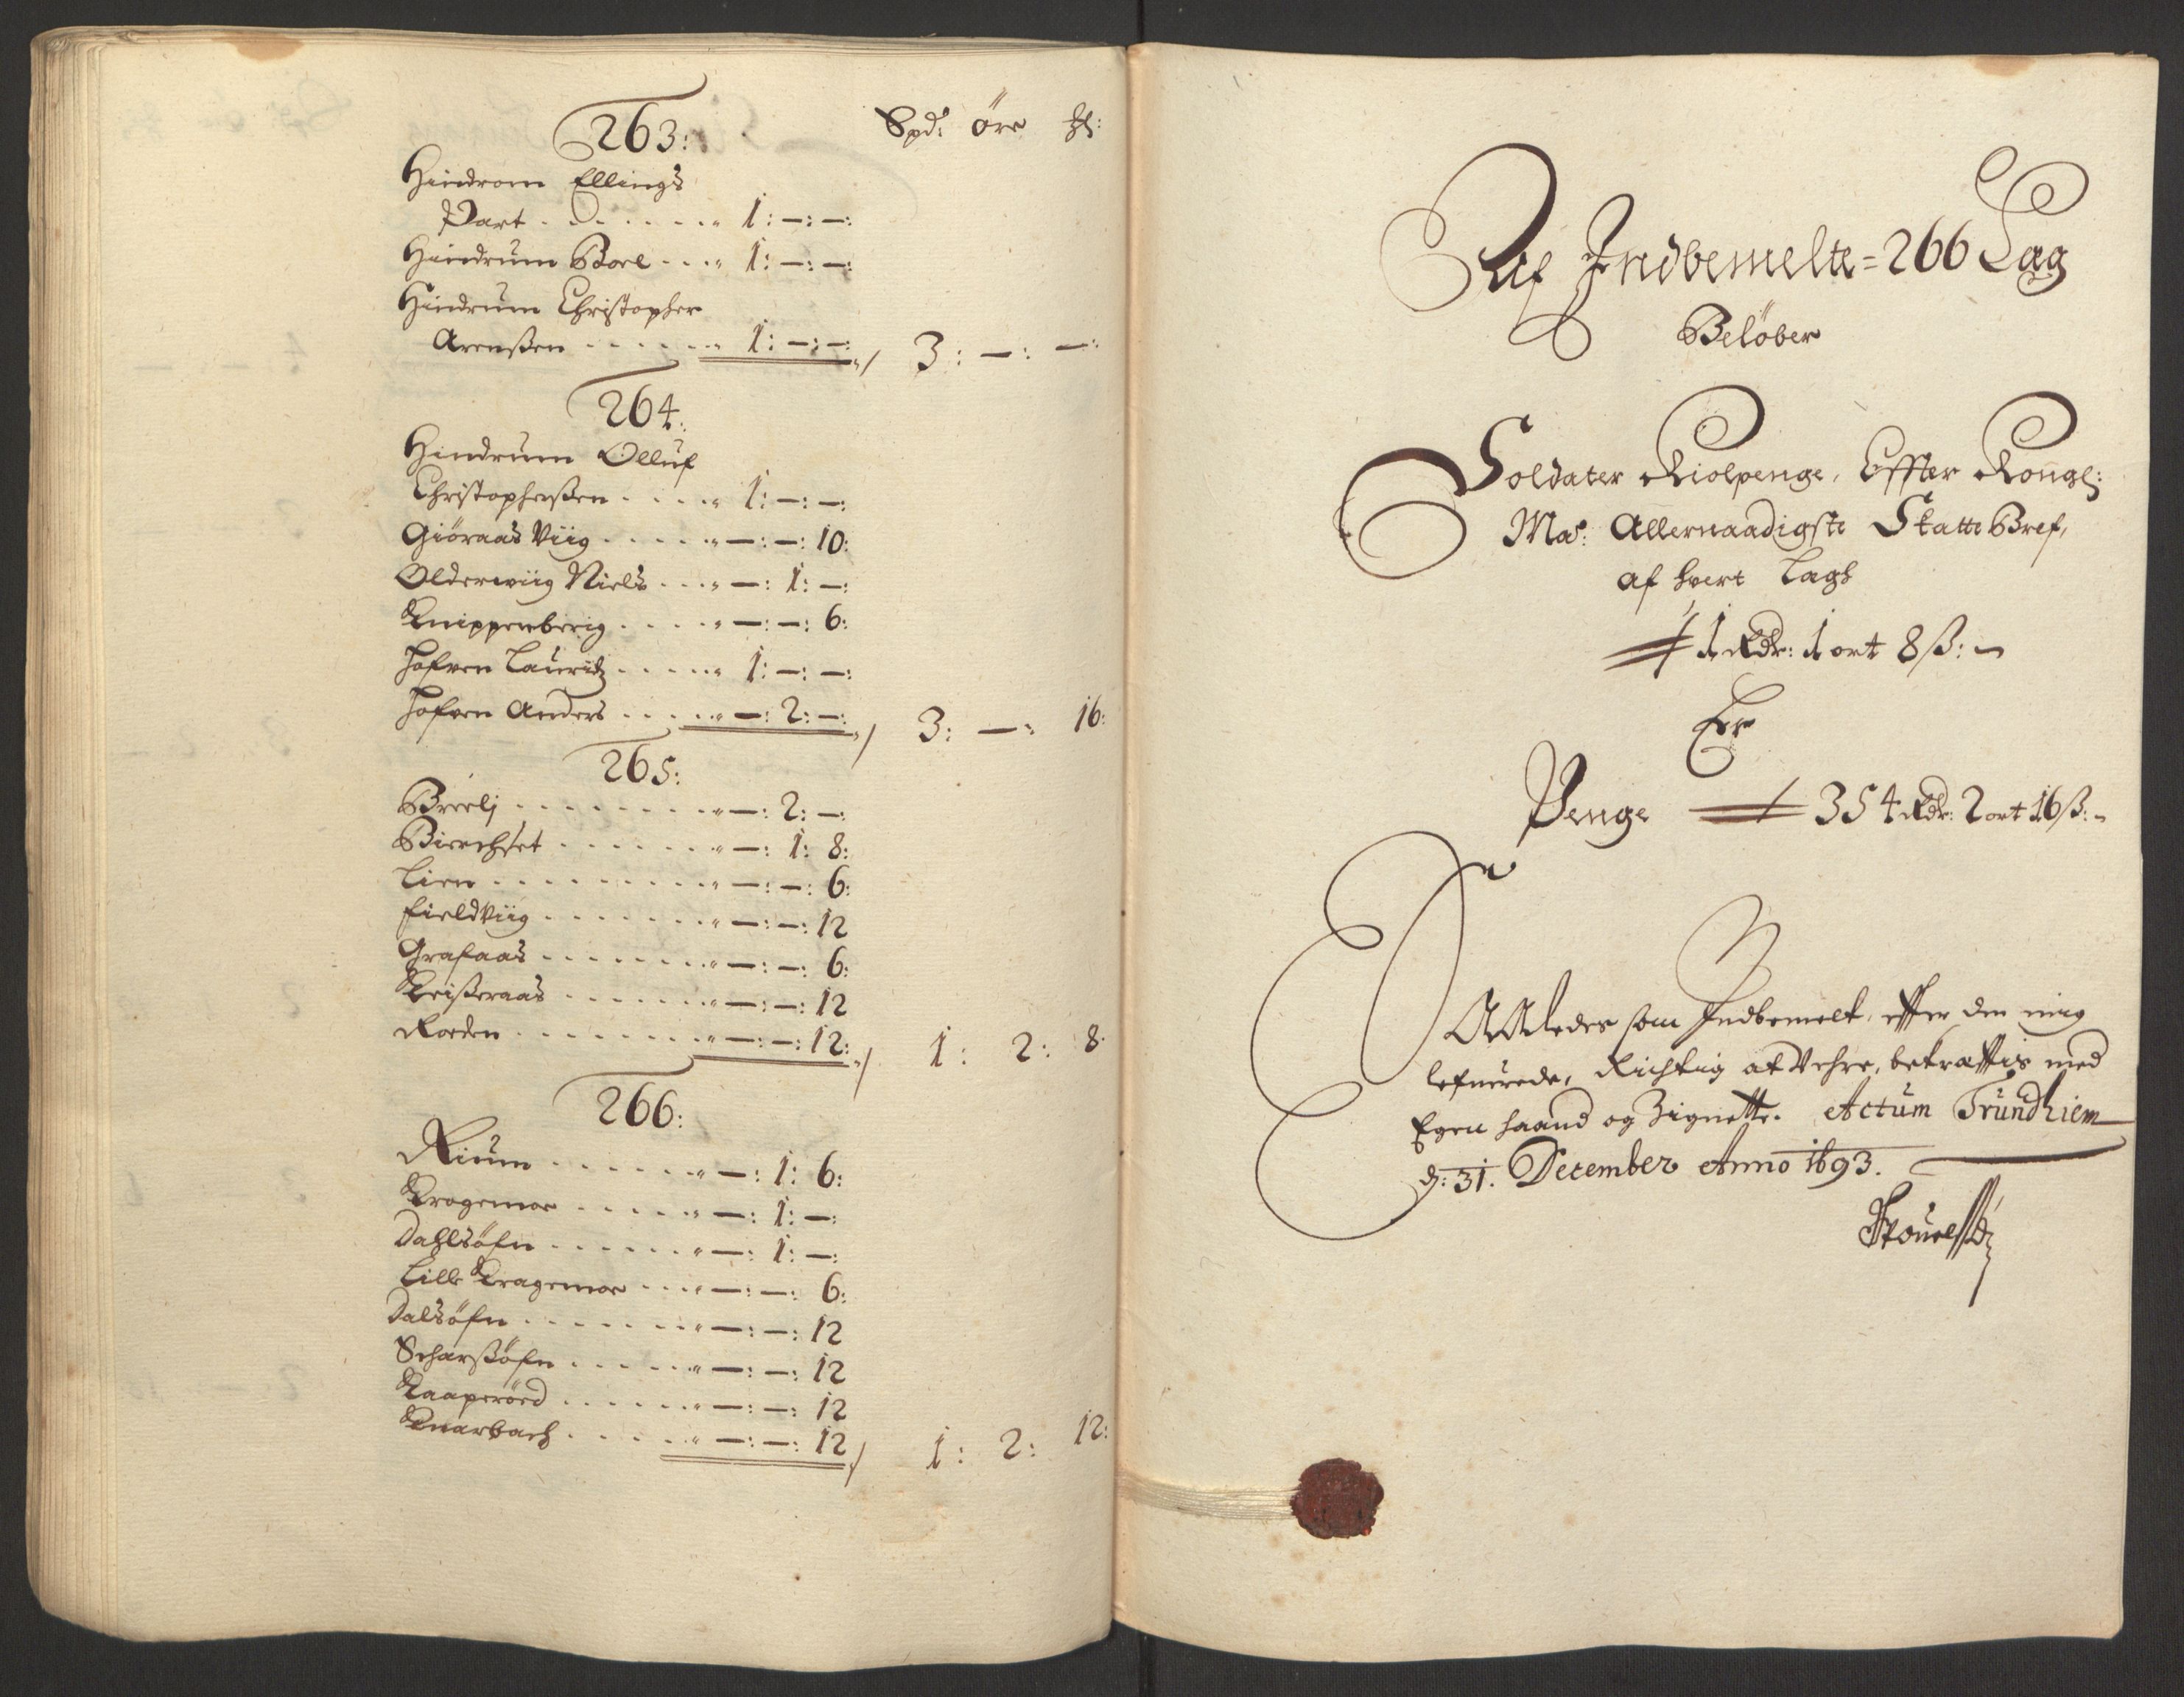 263: Spd: öre
Hindrom Ellings
Part . . . . . . . 1: —: —:
Hindrum Boel . . . 1: —: —:
Hindrum Christopher
Arenßen . . . . . . 1: —: —: / 3: —: —:
264:
Hindrum Olluf
Christopherßen . . . . 1: —: —:
Giöraas Viig . . . . . —: —: 10:
Olderwiig Niels . . . —: 1: —:
Knippenberig . . . . —: —: 6:
Hofven Lauritz . . . . 1: —: —:
Hofven Anders . . . . —: 2: —: / 3: —: 16:
265:
Breelj . . . . . . . —: 2: —:
Bierchset . . . . . . —: 1: 8:
Lien . . . . . . . . —: —: 6:
Fieldviig . . . . . . —: —: 12
Grafaas . . . . . . —: —: 6:
Kreißeraas . . . . . —: —: 12
Roeden . . . . . . . —: —: 12: / 1: 2: 8:
266:
Rium . . . . . . —: 1: 6:
Kragemoe . . . . . —: 1: —:
Dahlsöfn . . . . . . —: 1: —:
Lille Kragemoe . . . —: —: 6:
Dalsöfn . . . . . . . —: —: 12
Scharßöfn . . . . . —: —: 12
Kaaperöed . . . . . —: —: 12
Knarbach . . . . . —: —: 12 / 1: 2: 12:
Af Indbemelte = 266 Lag
Belöber
Soldater Kiolpenge, Effter Kongl:
Ma: Allernaadigste Skatte Bref,
af hvert Lagh
1 Rdr: 1 ort 8 ß:
Er
Penge 354 Rdr: 2 ort 16 ß:
Saaledes som Indbemelt, effter den mig
lefnerede, Richtig at Vehre, bekræfftis med
Egen haand og Zignette. Actum Trundhiem
d: 31. December Anno 1693.